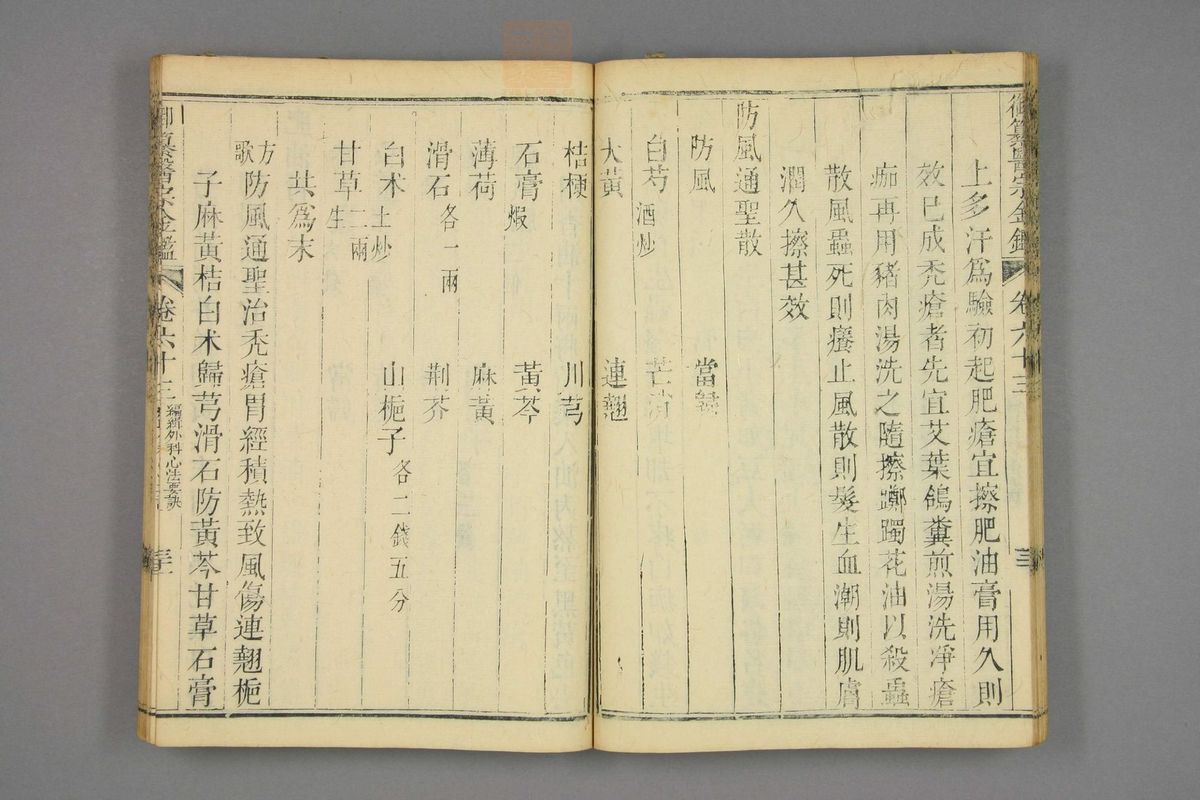 上多汗爲驗初起肥瘡宜擦肥油膏用久則
效已成禿瘡者先宜艾葉鴿糞煎湯洗凈瘡
痂再用豬肉湯洗之隨擦躑躅花油以殺蟲
散風蟲死則癢止風散則髮生血潮則肌膚
潤久擦甚效
防風通聖散
防風 當歸
白芍酒炒 芒硝
大黃 連翹
桔梗 川芎
石膏煅 黃芩
薄荷 麻黃
滑石各一兩 荆芥
白术土炒 山梔子各二錢五分
甘草二兩生
共爲末
方歌 防風通聖治禿瘡胃經積熱致風傷連翹梔
子麻黃桔白术歸芎滑石防黃芩甘草石膏
御纂醫宗金鑑 卷六十三
御纂醫宗金鑑 卷六十三 編輯外科心法要訣